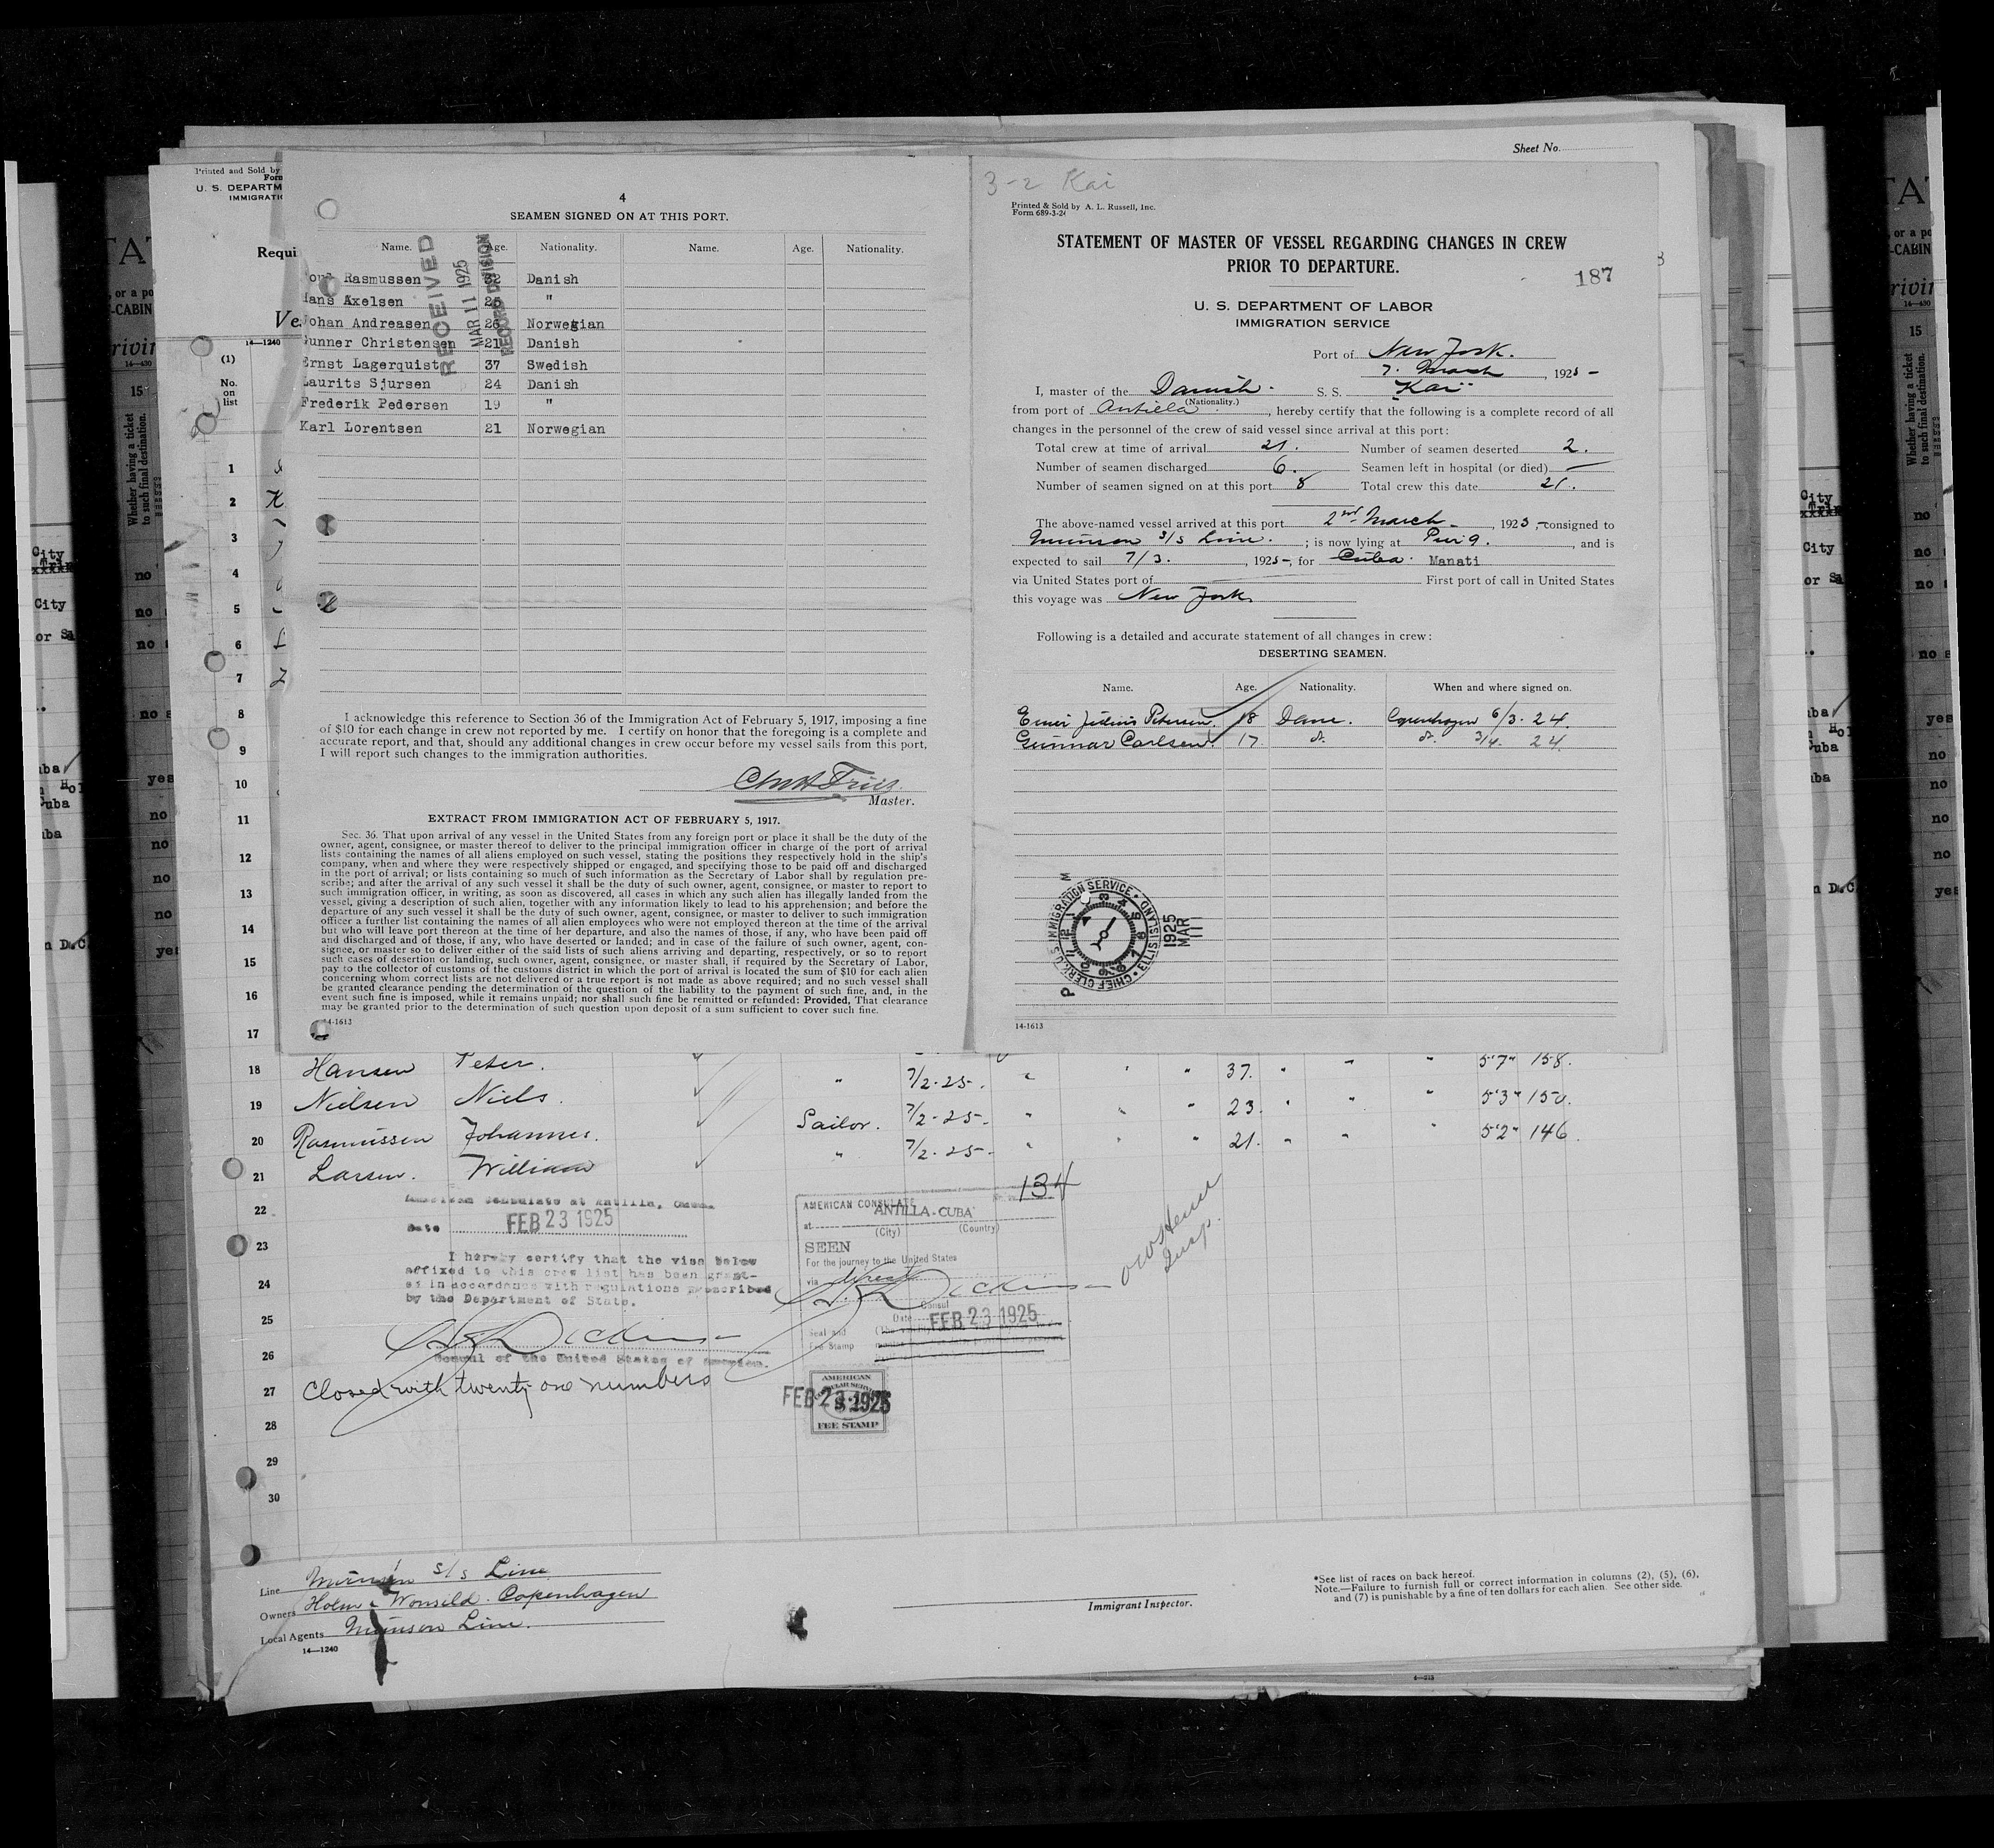 Sheet No.
Printed and Sold by
Form
U. S. DEPARTM
IMMIGRATI
Requi
Ve
14—1240
(1)
No.
on
list
4
SEAMEN SIGNED ON AT THIS PORT.
Name. Age. Nationality. Name. Age. Nationality.
RECEIVED
MAR 11 1925
RECORD DIVISION
Rasmussen 32 Danish
Hans Axelsen 25 "
Johan Andreasen 26 Norwegian
Gunner Christensen 21 Danish
Ernst Lagerquist 37 Swedish
Laurits Sjursen 24 Danish
Frederik Pedersen 19 "
Karl Lorentsen 21 Norwegian
I acknowledge this reference to Section 36 of the Immigration Act of February 5, 1917, imposing a fine
of $10 for each change in crew not reported by me. I certify on honor that the foregoing is a complete and
accurate report, and that, should any additional changes in crew occur before my vessel sails from this port,
I will report such changes to the immigration authorities.
Master.
EXTRACT FROM IMMIGRATION ACT OF FEBRUARY 5, 1917.
Sec. 36. That upon arrival of any vessel in the United States from any foreign port or place it shall be the duty of the
owner, agent, consignee, or master thereof to deliver to the principal immigration officer in charge of the port of arrival
lists containing the names of all aliens employed on such vessel, stating the positions they respectively hold in the ship's
company, when and where they were respectively shipped or engaged, and specifying those to be paid off and discharged
in the port of arrival; or lists containing so much of such information as the Secretary of Labor shall by regulation pre-
scribe; and after the arrival of any such vessel it shall be the duty of such owner, agent, consignee, or master to report to
such immigration officer, in writing, as soon as discovered, all cases in which any such alien has illegally landed from the
vessel, giving a description of such alien, together with any information likely to lead to his apprehension; and before the
departure of any such vessel it shall be the duty of such owner, agent, consignee, or master to deliver to such immigration
officer a further list containing the names of all alien employees who were not employed thereon at the time of the arrival
but who will leave port thereon at the time of her departure, and also the names of those, if any, who have been paid off
and discharged and of those, if any, who have deserted or landed; and in case of the failure of such owner, agent, con-
signee, or master so to deliver either of the said lists of such aliens arriving and departing, respectively, or so to report
such cases of desertion or landing, such owner, agent, consignee, or master shall, if required by the Secretary of Labor,
pay to the collector of customs of the customs district in which the port of arrival is located the sum of $10 for each alien
concerning whom correct lists are not delivered or a true report is not made as above required; and no such vessel shall
be granted clearance pending the determination of the question of the liability to the payment of such fine, and, in the
event such fine is imposed, while it remains unpaid; nor shall such fine be remitted or refunded: Provided, That clearance
may be granted prior to the determination of such question upon deposit of a sum sufficient to cover such fine.
14-1613
3-2 Kai
Printed & Sold by A. L. Russell, Inc.
Form 689-3-24
STATEMENT OF MASTER OF VESSEL REGARDING CHANGES IN CREW
PRIOR TO DEPARTURE.
187
U. S. DEPARTMENT OF LABOR
IMMIGRATION SERVICE
Port of New York.
7. March, 1925-
I, master of the Danish S. S. Kai
(Nationality.)
from port of Antilla, hereby certify that the following is a complete record of all
changes in the personnel of the crew of said vessel since arrival at this port:
Total crew at time of arrival 21. Number of seamen deserted 2.
Number of seamen discharged 6. Seamen left in hospital (or died) —
Number of seamen signed on at this port 8 Total crew this date 21.
The above-named vessel arrived at this port 2nd March, 1925, consigned to
Munson S/S Line.; is now lying at Pier 9., and is
expected to sail 7/3., 1925-, for Cuba. Manati
via United States port of First port of call in United States
this voyage was New York
Following is a detailed and accurate statement of all changes in crew:
DESERTING SEAMEN.
Name. Age. Nationality. When and where signed on.
Petersen. 18 Dane. Copenhagen 6/3. 24.
Gunnar Carlsen. 17. do. do. 3/4. 24
CHIEF CLERK, U.S. IMMIGRATION SERVICE • ELLIS ISLAND
1925
MAR
11
P M
14-1613
1
2
3
4
5
6
7
8
9
10
11
12
13
14
15
16
17
18 Hansen Peter. " 7/2-25-. " " " 37. " " " 5'7" 158.
19 Nielsen Niels. Sailor. 7/2-25-. " " " 23. " " " 5'3" 150.
20 Rasmussen Johannes. " 7/2-25-. " " " 21. " " " 5'2" 146.
21 Larsen. William
22
23
24
25
26
27 Closed with twenty one numbers
28
29
30
American Consulate at Antilla, Cuba.
Date FEB 23 1925
I hereby certify that the visa below
affixed to this crew list has been grant-
ed in accordance with regulations prescribed
by the Department of State.
Consul of the United States of America.
134
AMERICAN CONSULATE
at ANTILLA-CUBA
(City) (Country)
SEEN
For the journey to the United States
via direct
Consul
Date FEB 23 1925
Seal and
Fee Stamp
AMERICAN
CONSULAR SERVICE
FEE STAMP
FEB 23 1925
Insp.
Line Munson S/S Line
Owners Holm & Wonsild. Copenhagen
Local Agents Munson Line.
14—1240
Immigrant Inspector.
*See list of races on back hereof.
Note.—Failure to furnish full or correct information in columns (2), (5), (6),
and (7) is punishable by a fine of ten dollars for each alien. See other side.